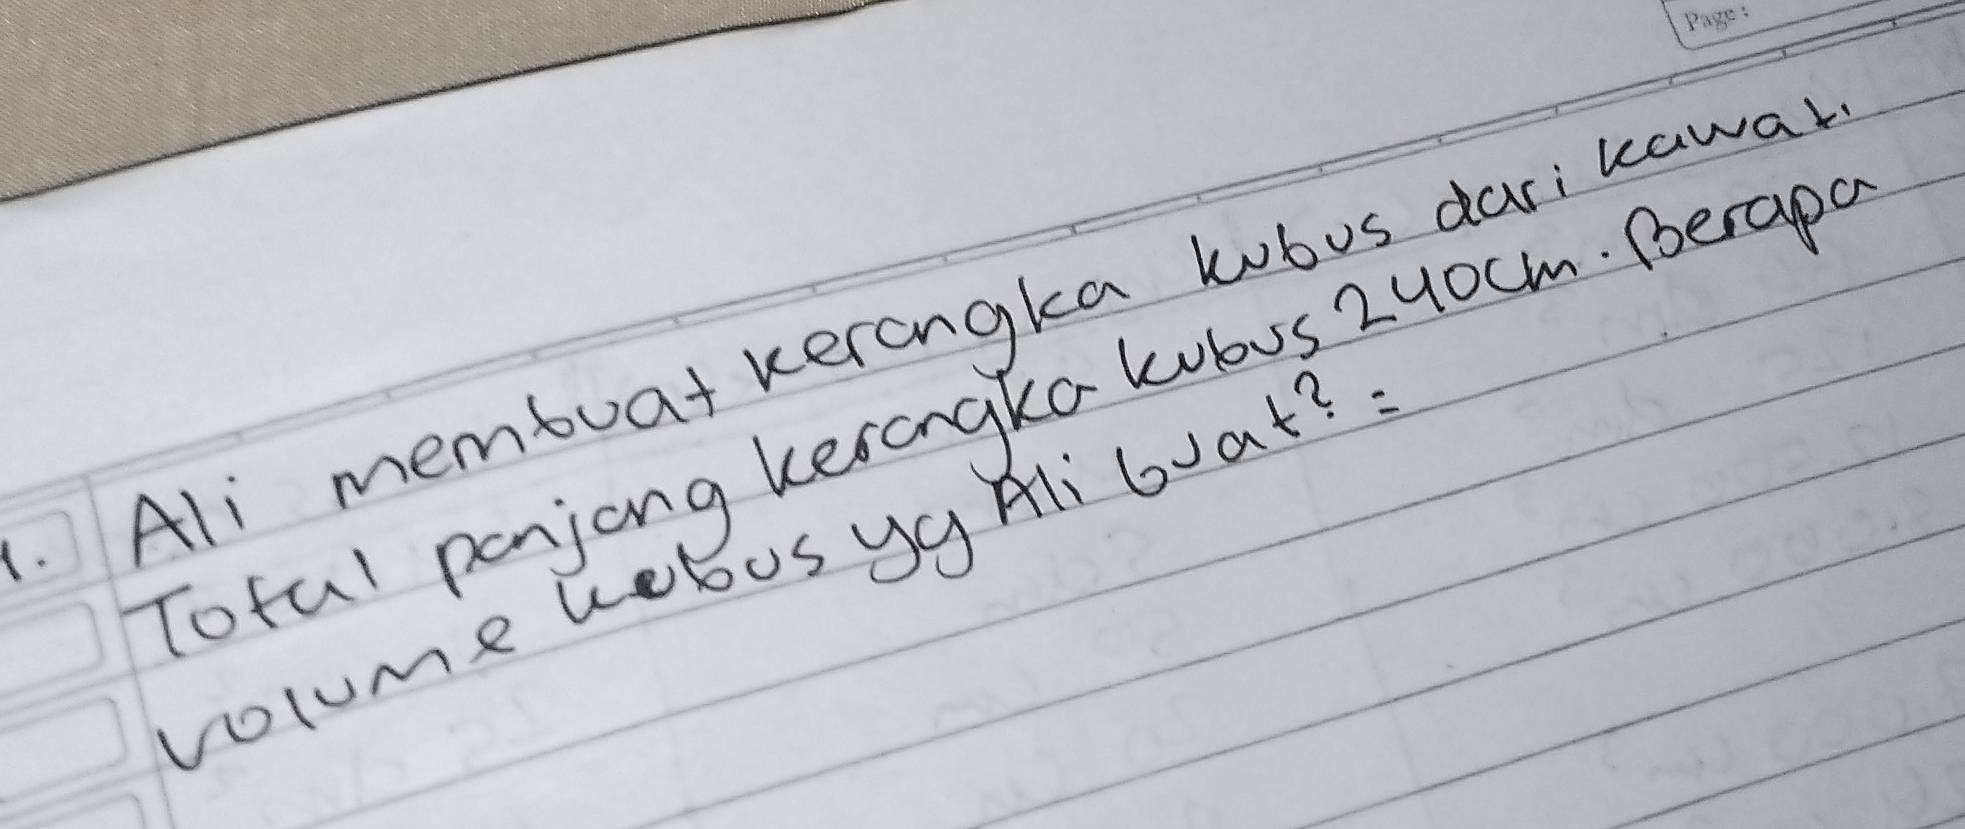 Page:
1. Ali membuat kerangka kubus dari kawat.
Total panjang kerangka kubus 240cm. Berapa
volume kubus yg Ali buat? =